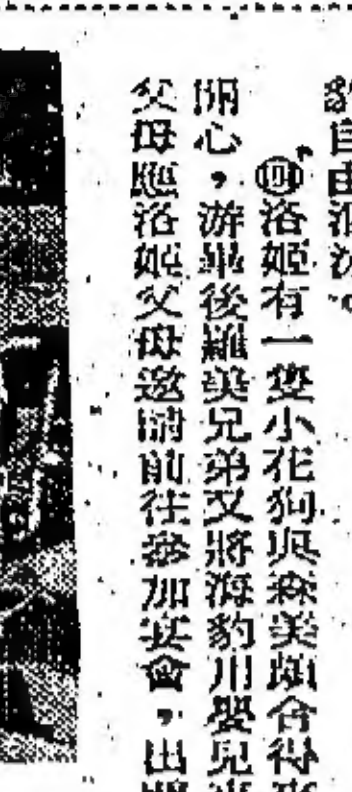 豹自由游泳。
㈣洛姬有一隻小花狗與森美頗合得來
開心，游畢後羅美兄弟又將海豹用嬰兒車
父母應洛姬父母邀請前往參加宴會，出